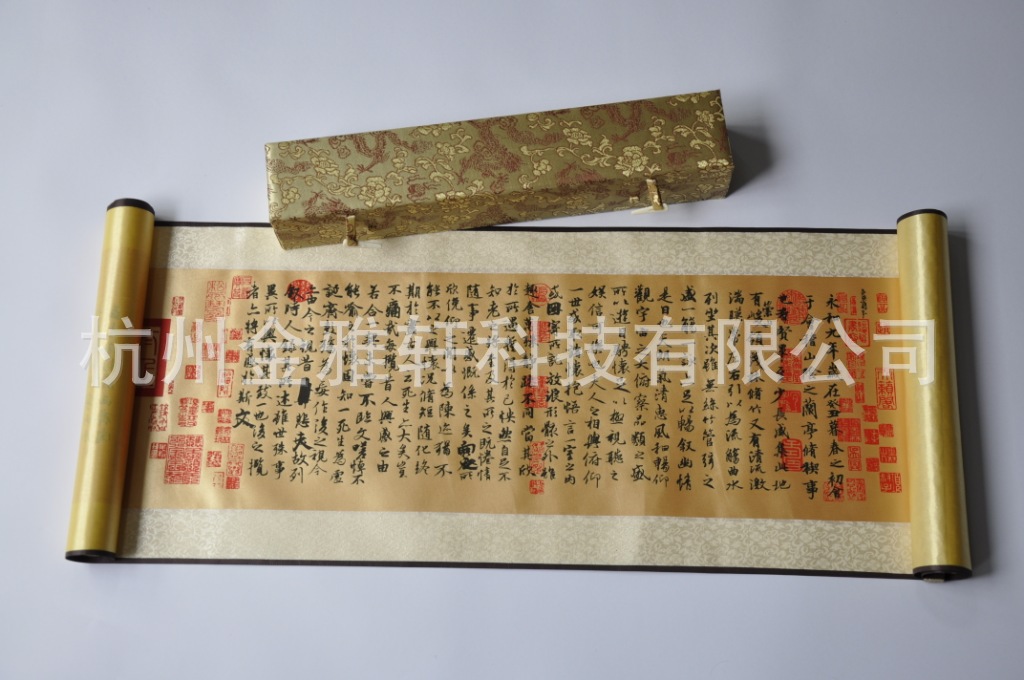 永和九年歲在癸丑暮春之初會
于會稽山陰之蘭亭脩稧事
也羣賢畢至少長咸集此地
有崇山峻領茂林脩竹又有清流激
湍暎帶左右引以為流觴曲水
列坐其次雖無絲竹管弦之
盛一觴一詠亦足以暢敘幽情
是日也天朗氣清惠風和暢仰
觀宇宙之大俯察品類之盛
所以遊目騁懷足以極視聽之
娛信可樂也夫人之相與俯仰
一世或取諸懷抱悟言一室之內
或因寄所託放浪形骸之外雖
趣舍萬殊靜躁不同當其欣
於所遇暫得於己怏然自足不
知老之將至及其所之既惓情
隨事遷感慨係之矣向之所
欣俛仰之間以為陳迹猶不
能不以之興懷況脩短隨化終
期於盡古人云死生亦大矣豈
不痛哉每攬昔人興感之由
若合一契未嘗不臨文嗟悼不
能喻之於懷固知一死生為虛
誕齊彭殤為妄作後之視今
亦由今之視昔悲夫故列
敘時人錄其所述雖世殊事
異所以興懷其致一也後之攬
者亦將有感於斯文
杭州金雅轩科技有限公司